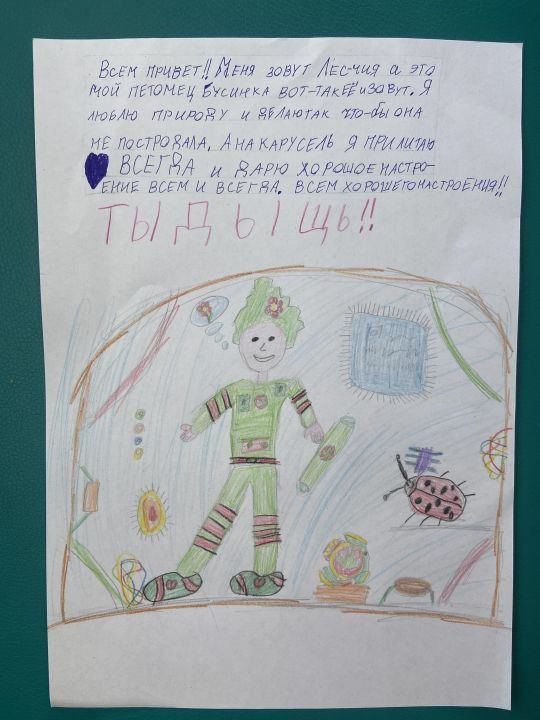 Всем привет!! Меня зовут Лес-чия а это
мой петомец Бусинка вот-так её и зовут. Я
люблю природу и делаю так что-бы она
не постродала, А на карусель я прилитаю
ВСЕГДА и дарю хорошое настро-
ение всем и всегда. Всем хорошего настроения!!
ТЫДЫЩЬ!!